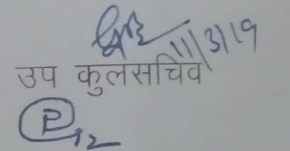 11/3/19
उप कुलसचिव
P
12